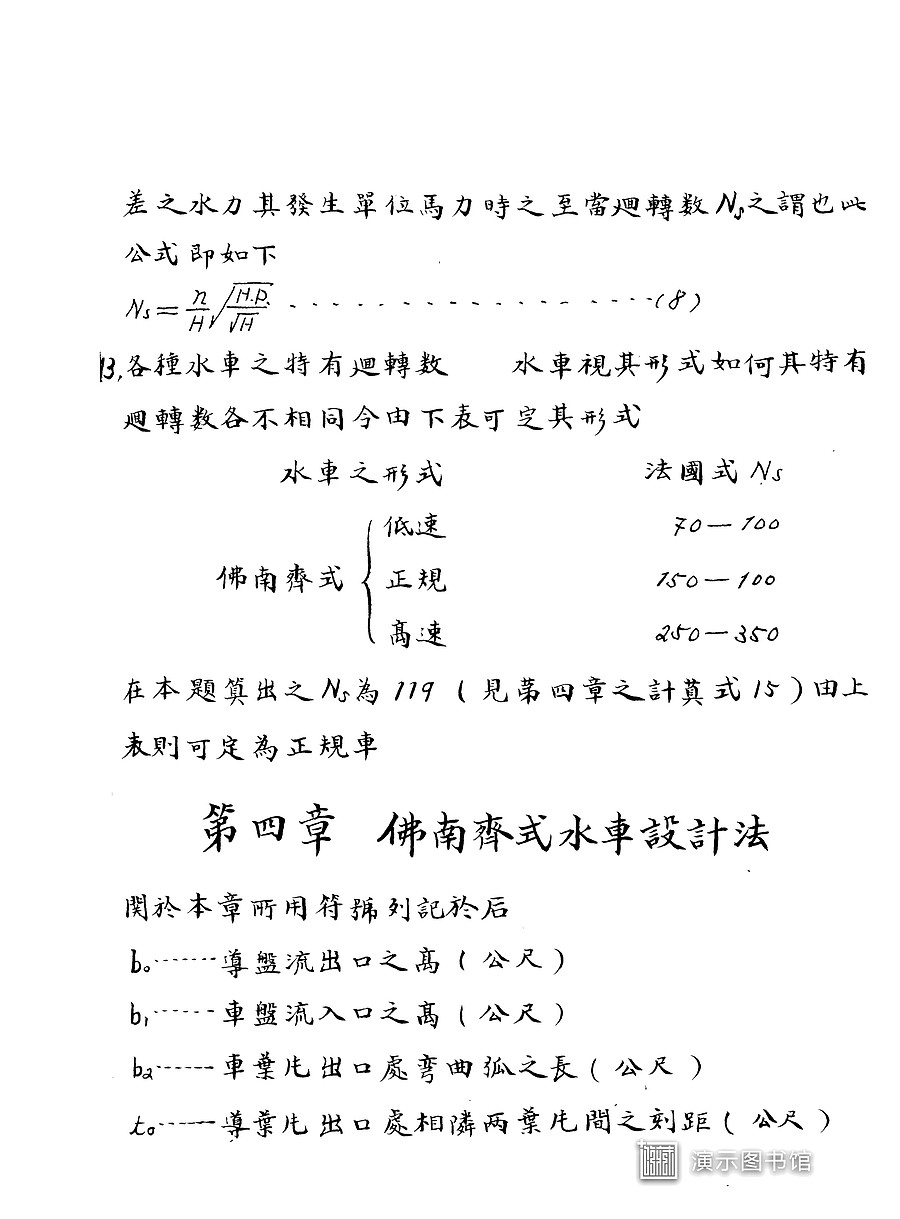 差之水力其發生單位馬力時之至當廻轉數Ns之謂也此
公式即如下
Ns=n/H√(H.P./√H) ------------------(8)
13,各種水車之特有廻轉數 水車視其形式如何其特有
廻轉數各不相同今由下表可定其形式
水車之形式 法國式Ns
低速 70—100
佛南齊式{正規 150—100
高速 250—350
在本題算出之Ns為119(見第四章之計算式15)由上
表則可定為正規車
第四章 佛南齊式水車設計法
関於本章所用符號列記於后
b₀-------導盤流出口之高(公尺)
b₁-------車盤流入口之高(公尺)
b₂-------車葉片出口處弯曲弧之長(公尺)
t₀-------導葉片出口處相隣两葉片間之刻距(公尺)
演示图书馆